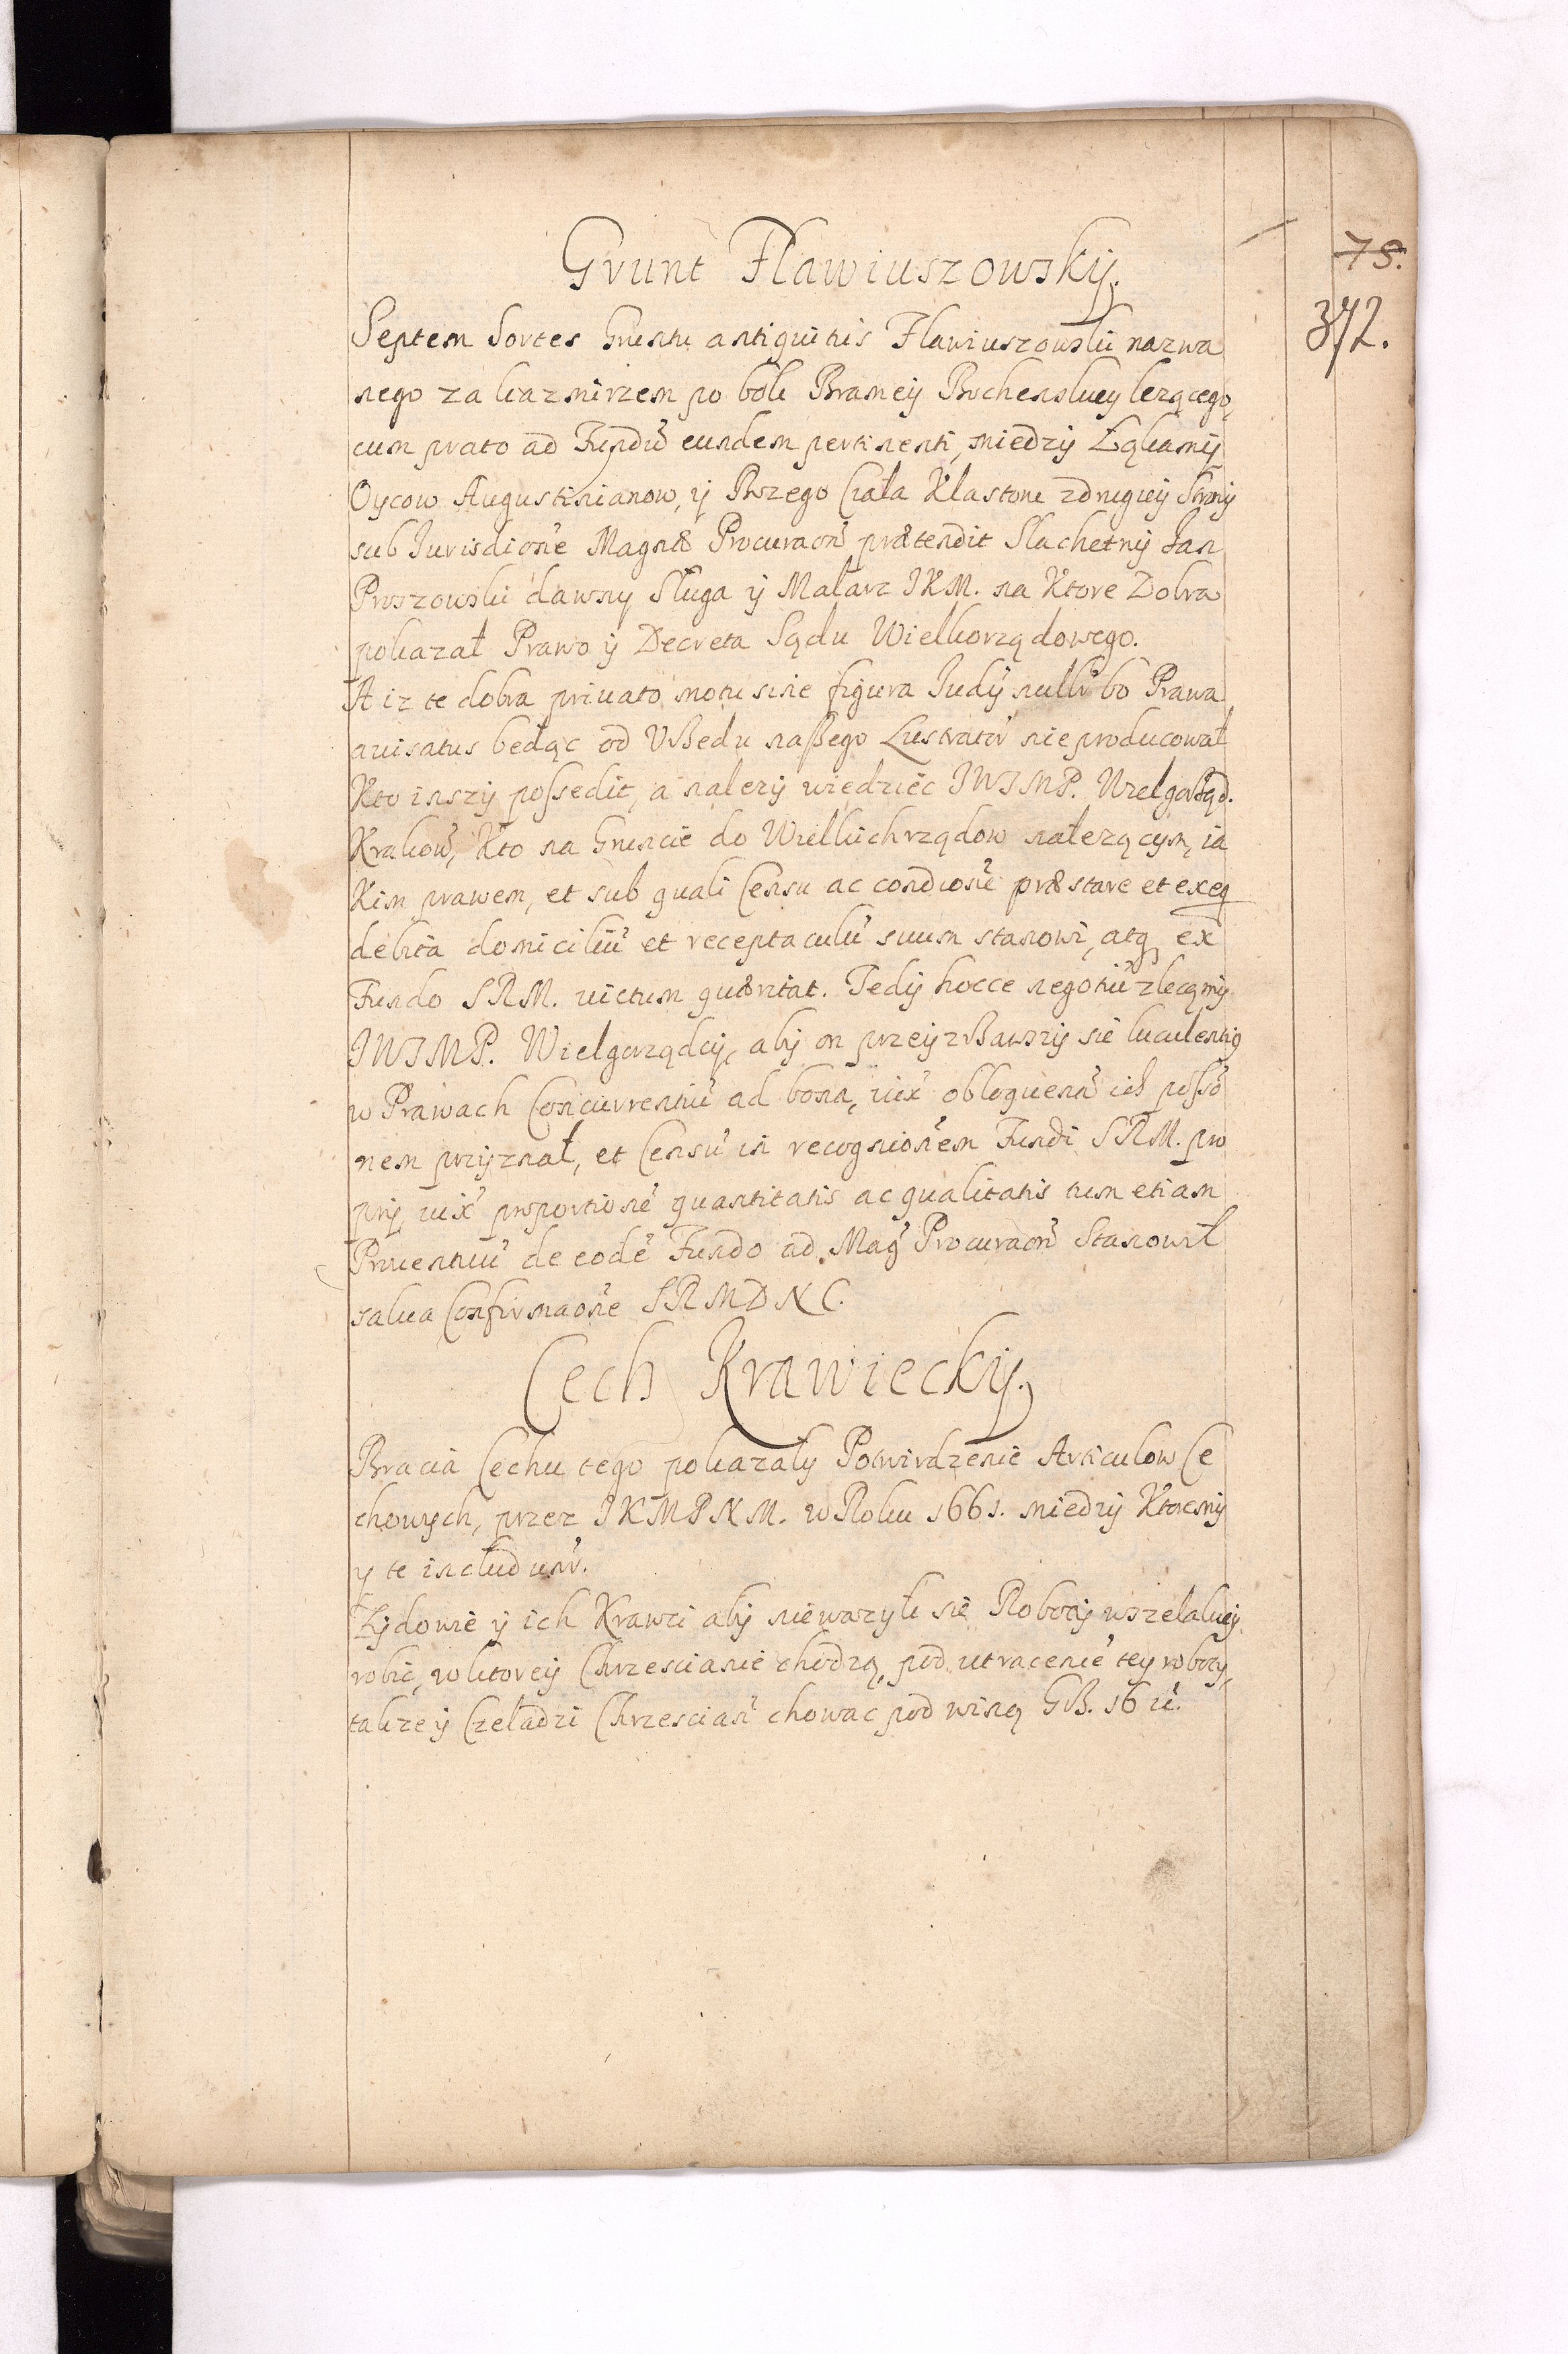 Grunt Flawiuszowskÿ.
78.
372.
Septem Sortes Gruntu antiquitus Flawiuszowski nazwa
nego za kazmirzem po bok Brameÿ Bochenskiey lezącego,
cum prato ad Fundū eundem pertinenti, miedzÿ Łąkamÿ
Oycow Augustinianow, ÿ Bożego Ciała Klastoru z drugieÿ stronÿ
sub Iurisdicōne Magnæ Procuraōn prætendit Slachetnÿ Jan
Proszowski dawny Sługa ÿ Malarz JKM. na Ktore Dobra
pokazał Prawo ÿ Decreta Sądu Wielkorządowego.
A iz te dobra priuato motu sine figura Iudÿ nulli bo Prawa
auisatus będąc od Vrzędu naszego Lustrator nie producował
Kto inszÿ possedit, a nalezÿ wiedziec JWJMP. Wielgorząd.
Krakow, Kto na Gruncie do Wielkich rządow nalezącym, ia
kim prawem, et sub quali Censu ac condicōne præstare et exeq
debita domiciliū et receptaculū suum stanowi, atq ex
Fundo SRM. victum quæritat. Tedÿ hocce negotiū zlecamÿ
JWJMP. Wielgorządcÿ, abÿ on przeÿzrzawszÿ się luculenter
w Prawach Concurrentiū ad bona, iux obloquenr ich posso
nem przÿznał, et Censū in recognionem Fundi SRM. pro
prÿ, iux proportionē quantitatis ac qualitatis tum etiam
Prouentuū de eodē Fundo ad Mag Procuraōn Stanowił
salua Confirmaōne SRMDNC.
Cech Krawieckÿ.
Bracia Cechu tego pokazalÿ Potwirdzenie Articulow Ce
chowych, przez JKMPNM. w Roku 1661. miedzÿ Ktoremÿ
y te includunr.
Zÿdowie ÿ ich Krawci abÿ nie wazyli się Robotÿ wszelakieÿ
robic, w ktoreÿ Chrzescianie chodzą, pod utracenie tey robotÿ,
takze ÿ Czeladzi Chrzescian chowac pod winą 16